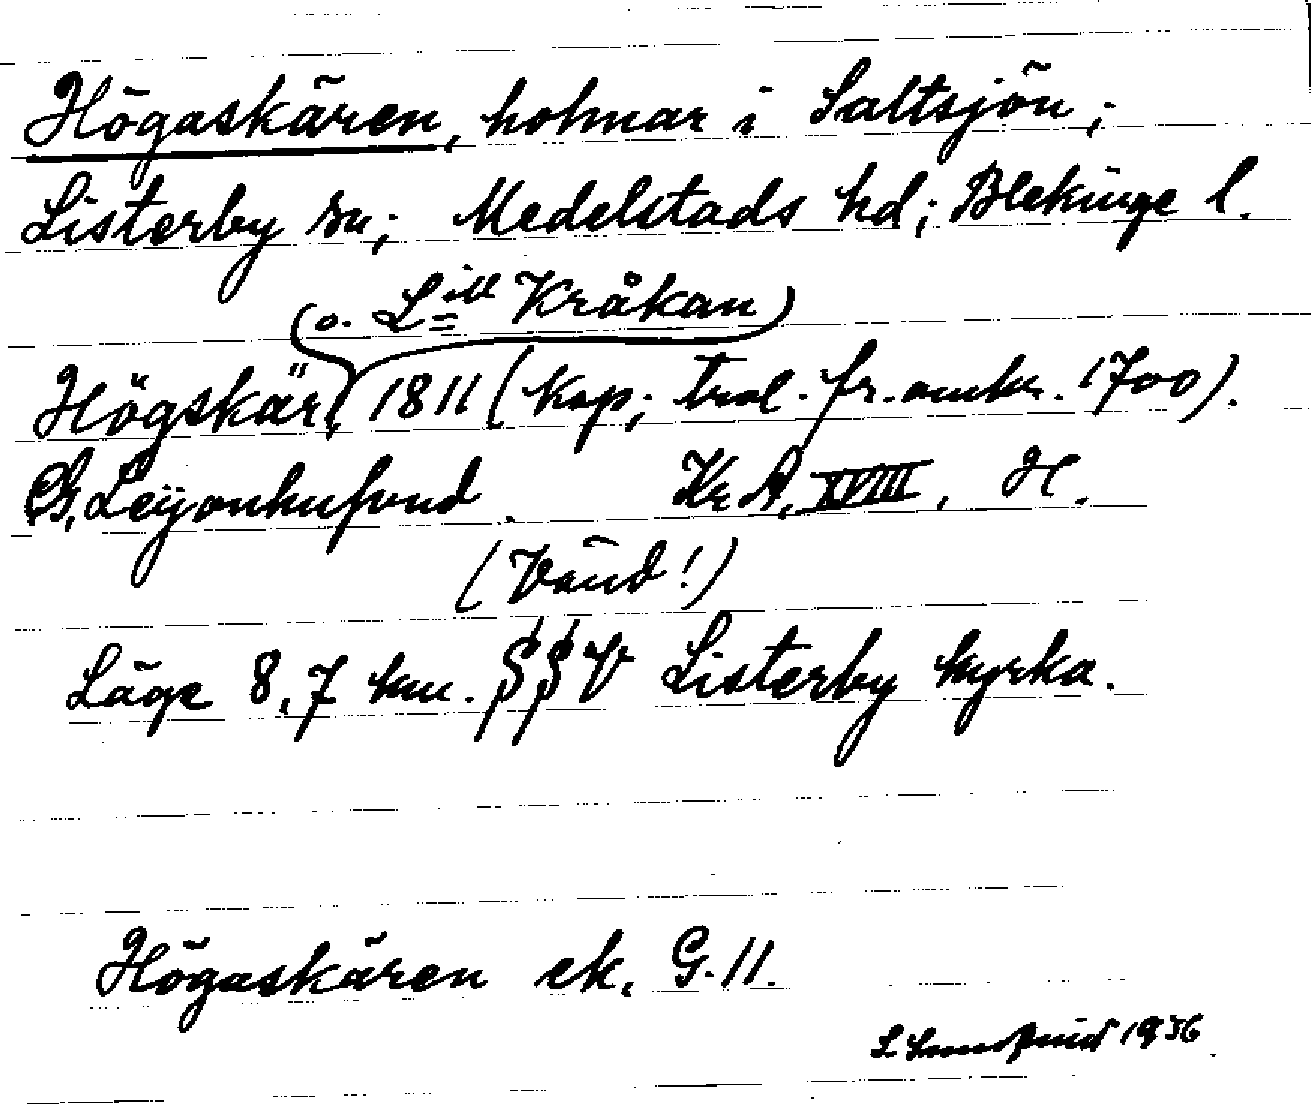 Högaskären, holmar i Saltsjön;
Listerby sn; Medelstads hd; Blekinge l.
(o. Lill Kråkan)
Högskär, 1811 (kop; trol. fr. omkr. 1700).
G. Leijonhufvud. Kr A, XVIII, H.
(Vänd!)
Läge 8,7 km. SSV Listerby kyrka.
Högaskären ek. G. 11.
1936